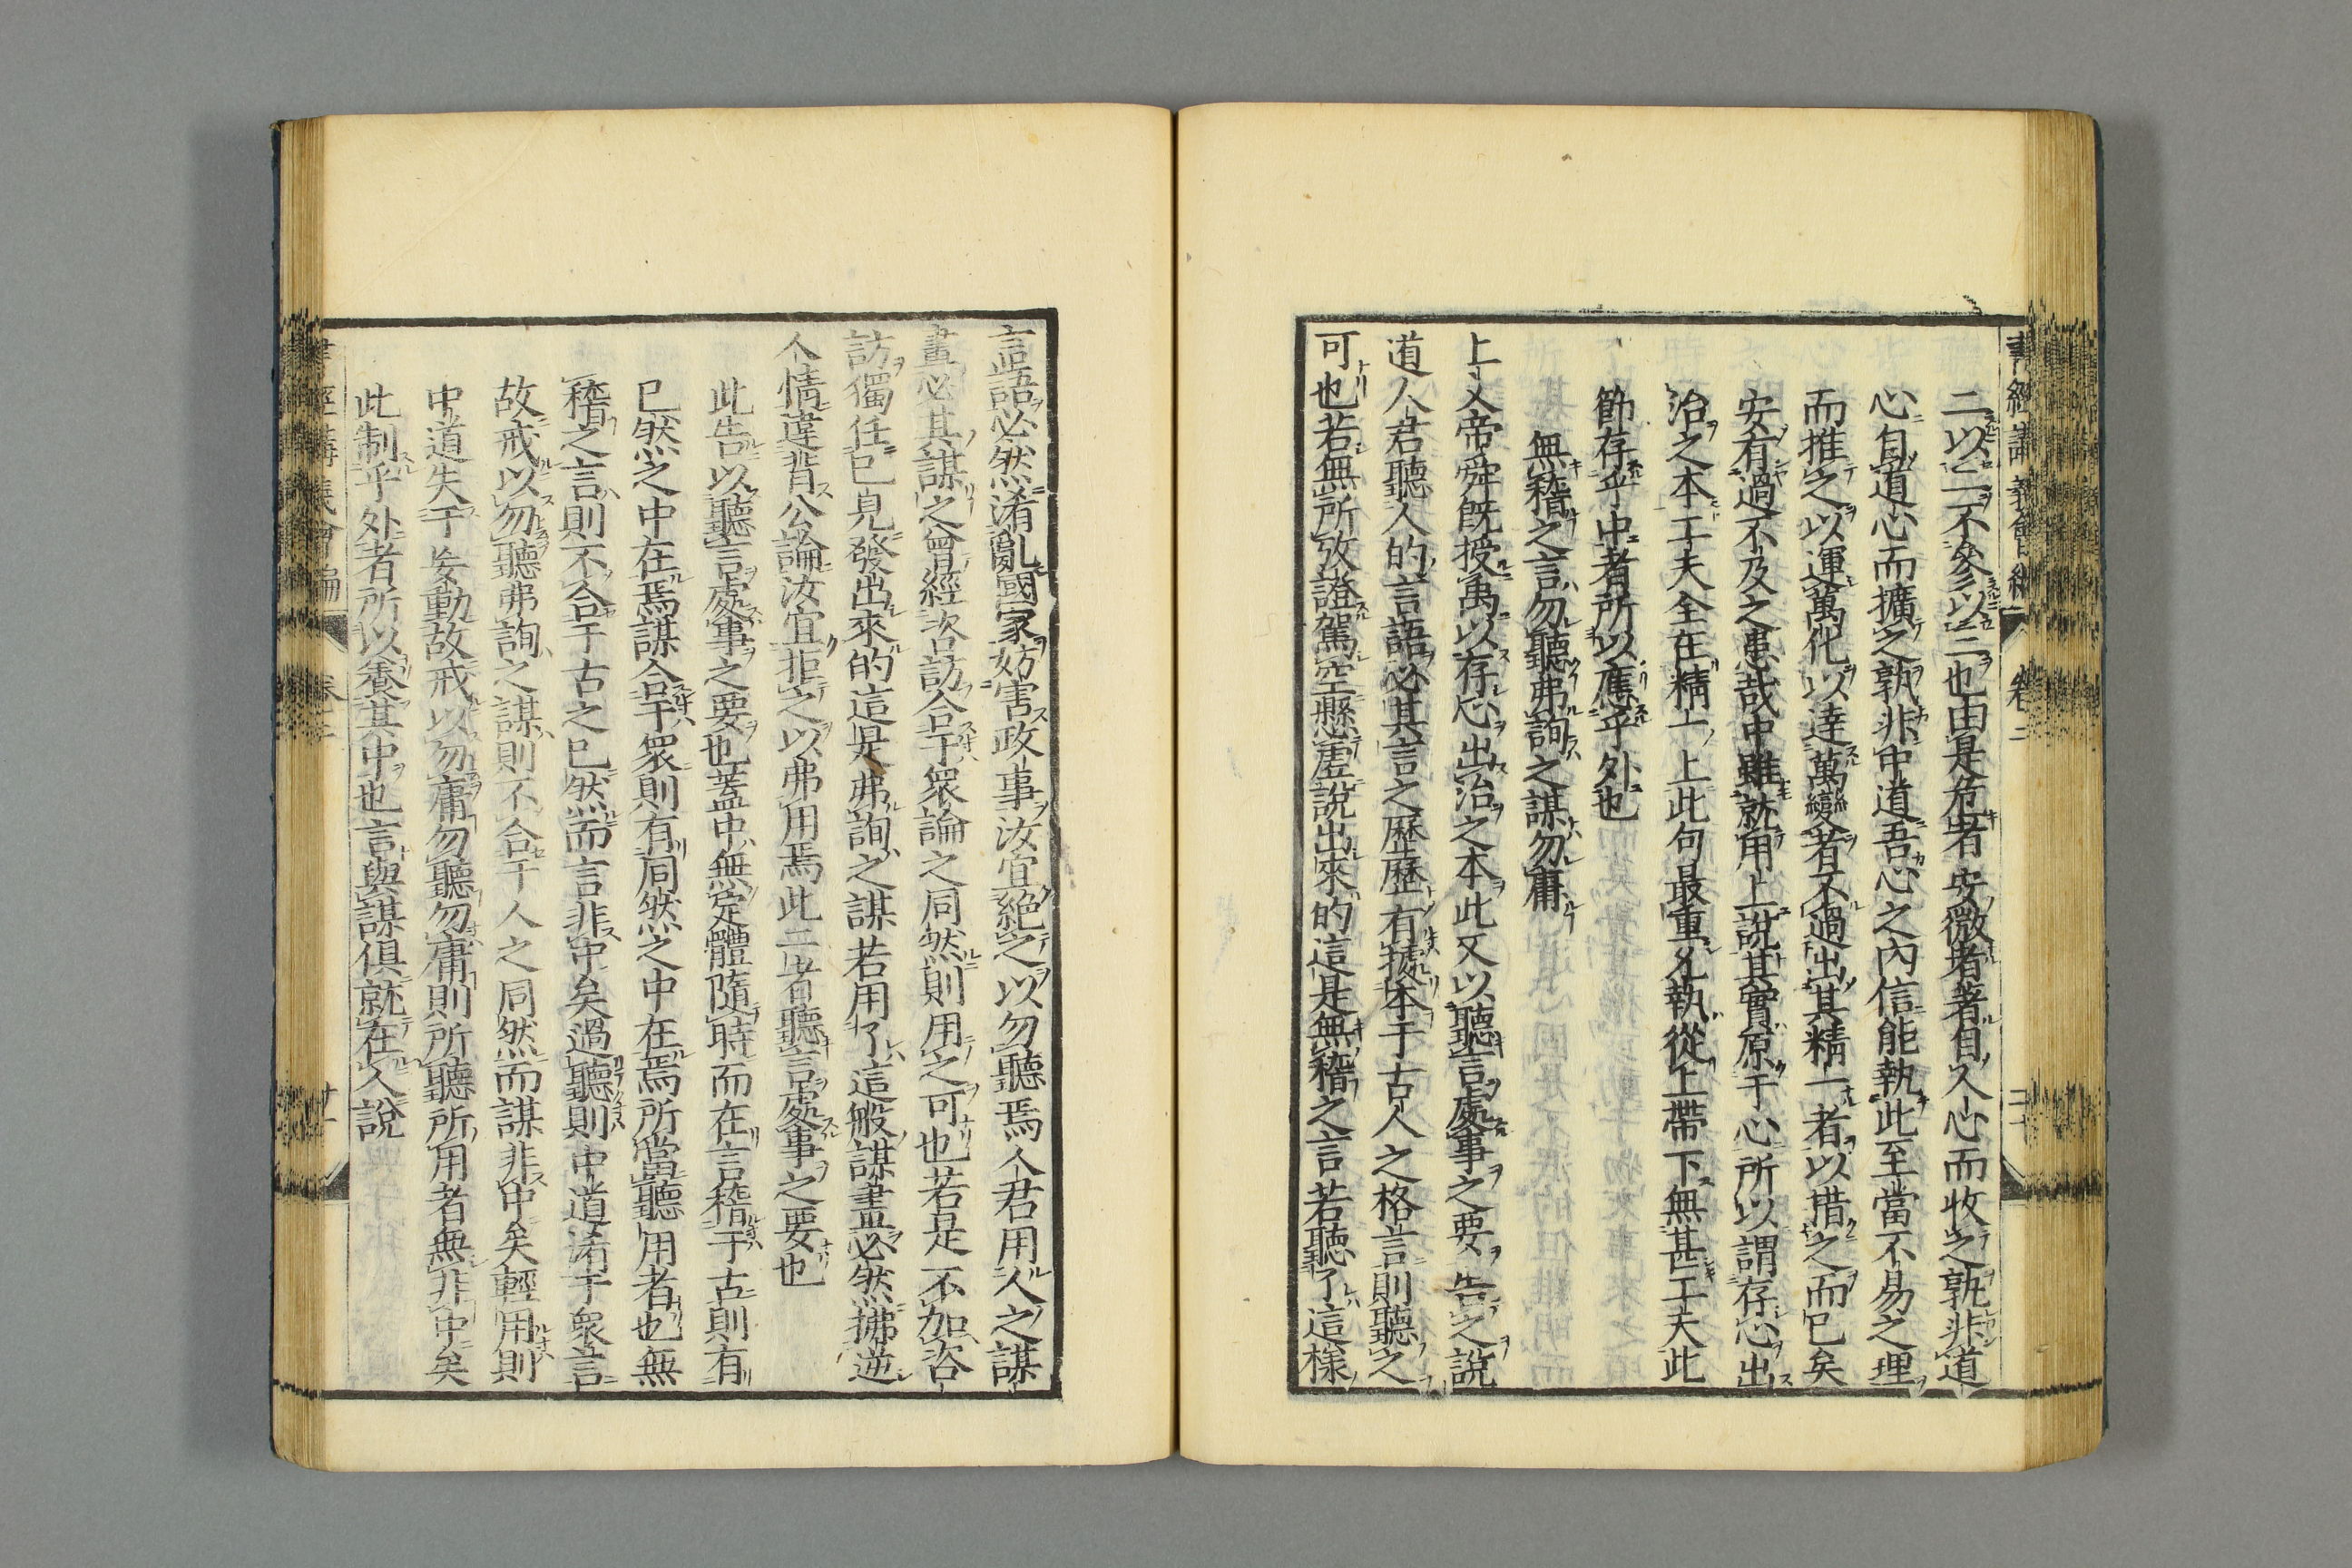 書經講義會編 卷二 二十
二以二不參以三也由是危者安微者著自人心而收之孰非道
心自道心而擴之孰非中道吾心之內信能執此至當不易之理
而推之以運萬化以達萬變者不過出其精一者以措之而已矣
安有過不及之患哉中雖就用上說其實原于心所以謂存心出
治之本工夫全在精一上此句最重允執從上帶下無甚工夫此
節存乎中者所以應乎外也
無稽之言勿聽弗詢之謀勿庸
上文帝舜既授禹以存心出治之本此又以聽言處事之要告之說
道人君聽人的言語必其言之歷歷有據本于古人之格言則聽之
可也若無所攷證駕空懸虛說出來的這是無稽之言若聽了這樣
言語必然淆亂國家妨害政事汝宜絕之以勿聽焉人君用人之謀
畫必其謀之曾經咨訪合于衆論之同然則用之可也若是不加咨
訪獨任己見發出來的這是弗詢之謀若用了這般謀畫必然拂逆
人情違背公論汝宜拒之以弗用焉此二者聽言處事之要也
此告以聽言處事之要也蓋中無定體隨時而在言稽于古則有
已然之中在焉謀合于衆則有同然之中在焉所當聽用者也無
稽之言則不合于古之已然而言非中矣過聽則中道淆于衆言
故戒以勿聽弗詢之謀則不合于人之同然而謀非中矣輕用則
中道失于妄動故戒以勿庸勿聽勿庸則所聽所用者無非中矣
此制乎外者所以養其中也言與謀俱就在人說
書經講義會編 卷二 廿一